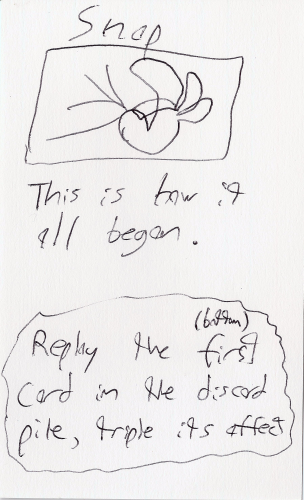 Snap
This is how it
all began.
(bottom)
Replay the first
card in the discard
pile, triple its affect